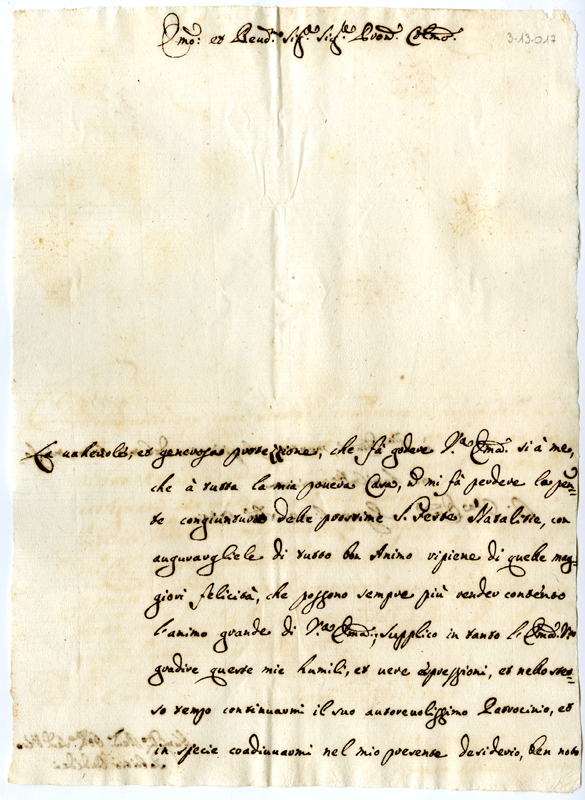 Em̃o: et Reud.º Sig.r Sig.r Pron. Colmo.
3-13-017
La ualeuole, et generosa protezzione, che fà godere V.a Em̃a. si à me,
che à tutta la mia pouera Casa, mi fà perdere la pen-
te congiunture delle prossime S. Feste Natalitie, con
augurargliele di tutto bon Animo ripiene di quelle mag-
giori felicità, che possono sempre più render contento
l'animo grande di V.a Em̃a.; supplico in tanto l'Em̃a. V.a
gradire queste mie humili, et uere espressioni, et nello stes-
so tempo continuarmi il suo autoreuolissimo Patrocinio, et
in specie coadiuuarmi nel mio presente desiderio, ben noto